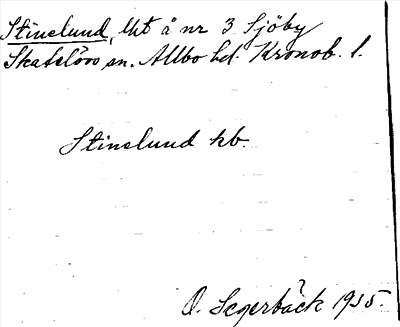 Stinslund, lht å nr 3 Sjöby
Skatelövs sn. Allbo hd. Kronob. l.
Stinslund kb.
O. Segerbäck 1935.